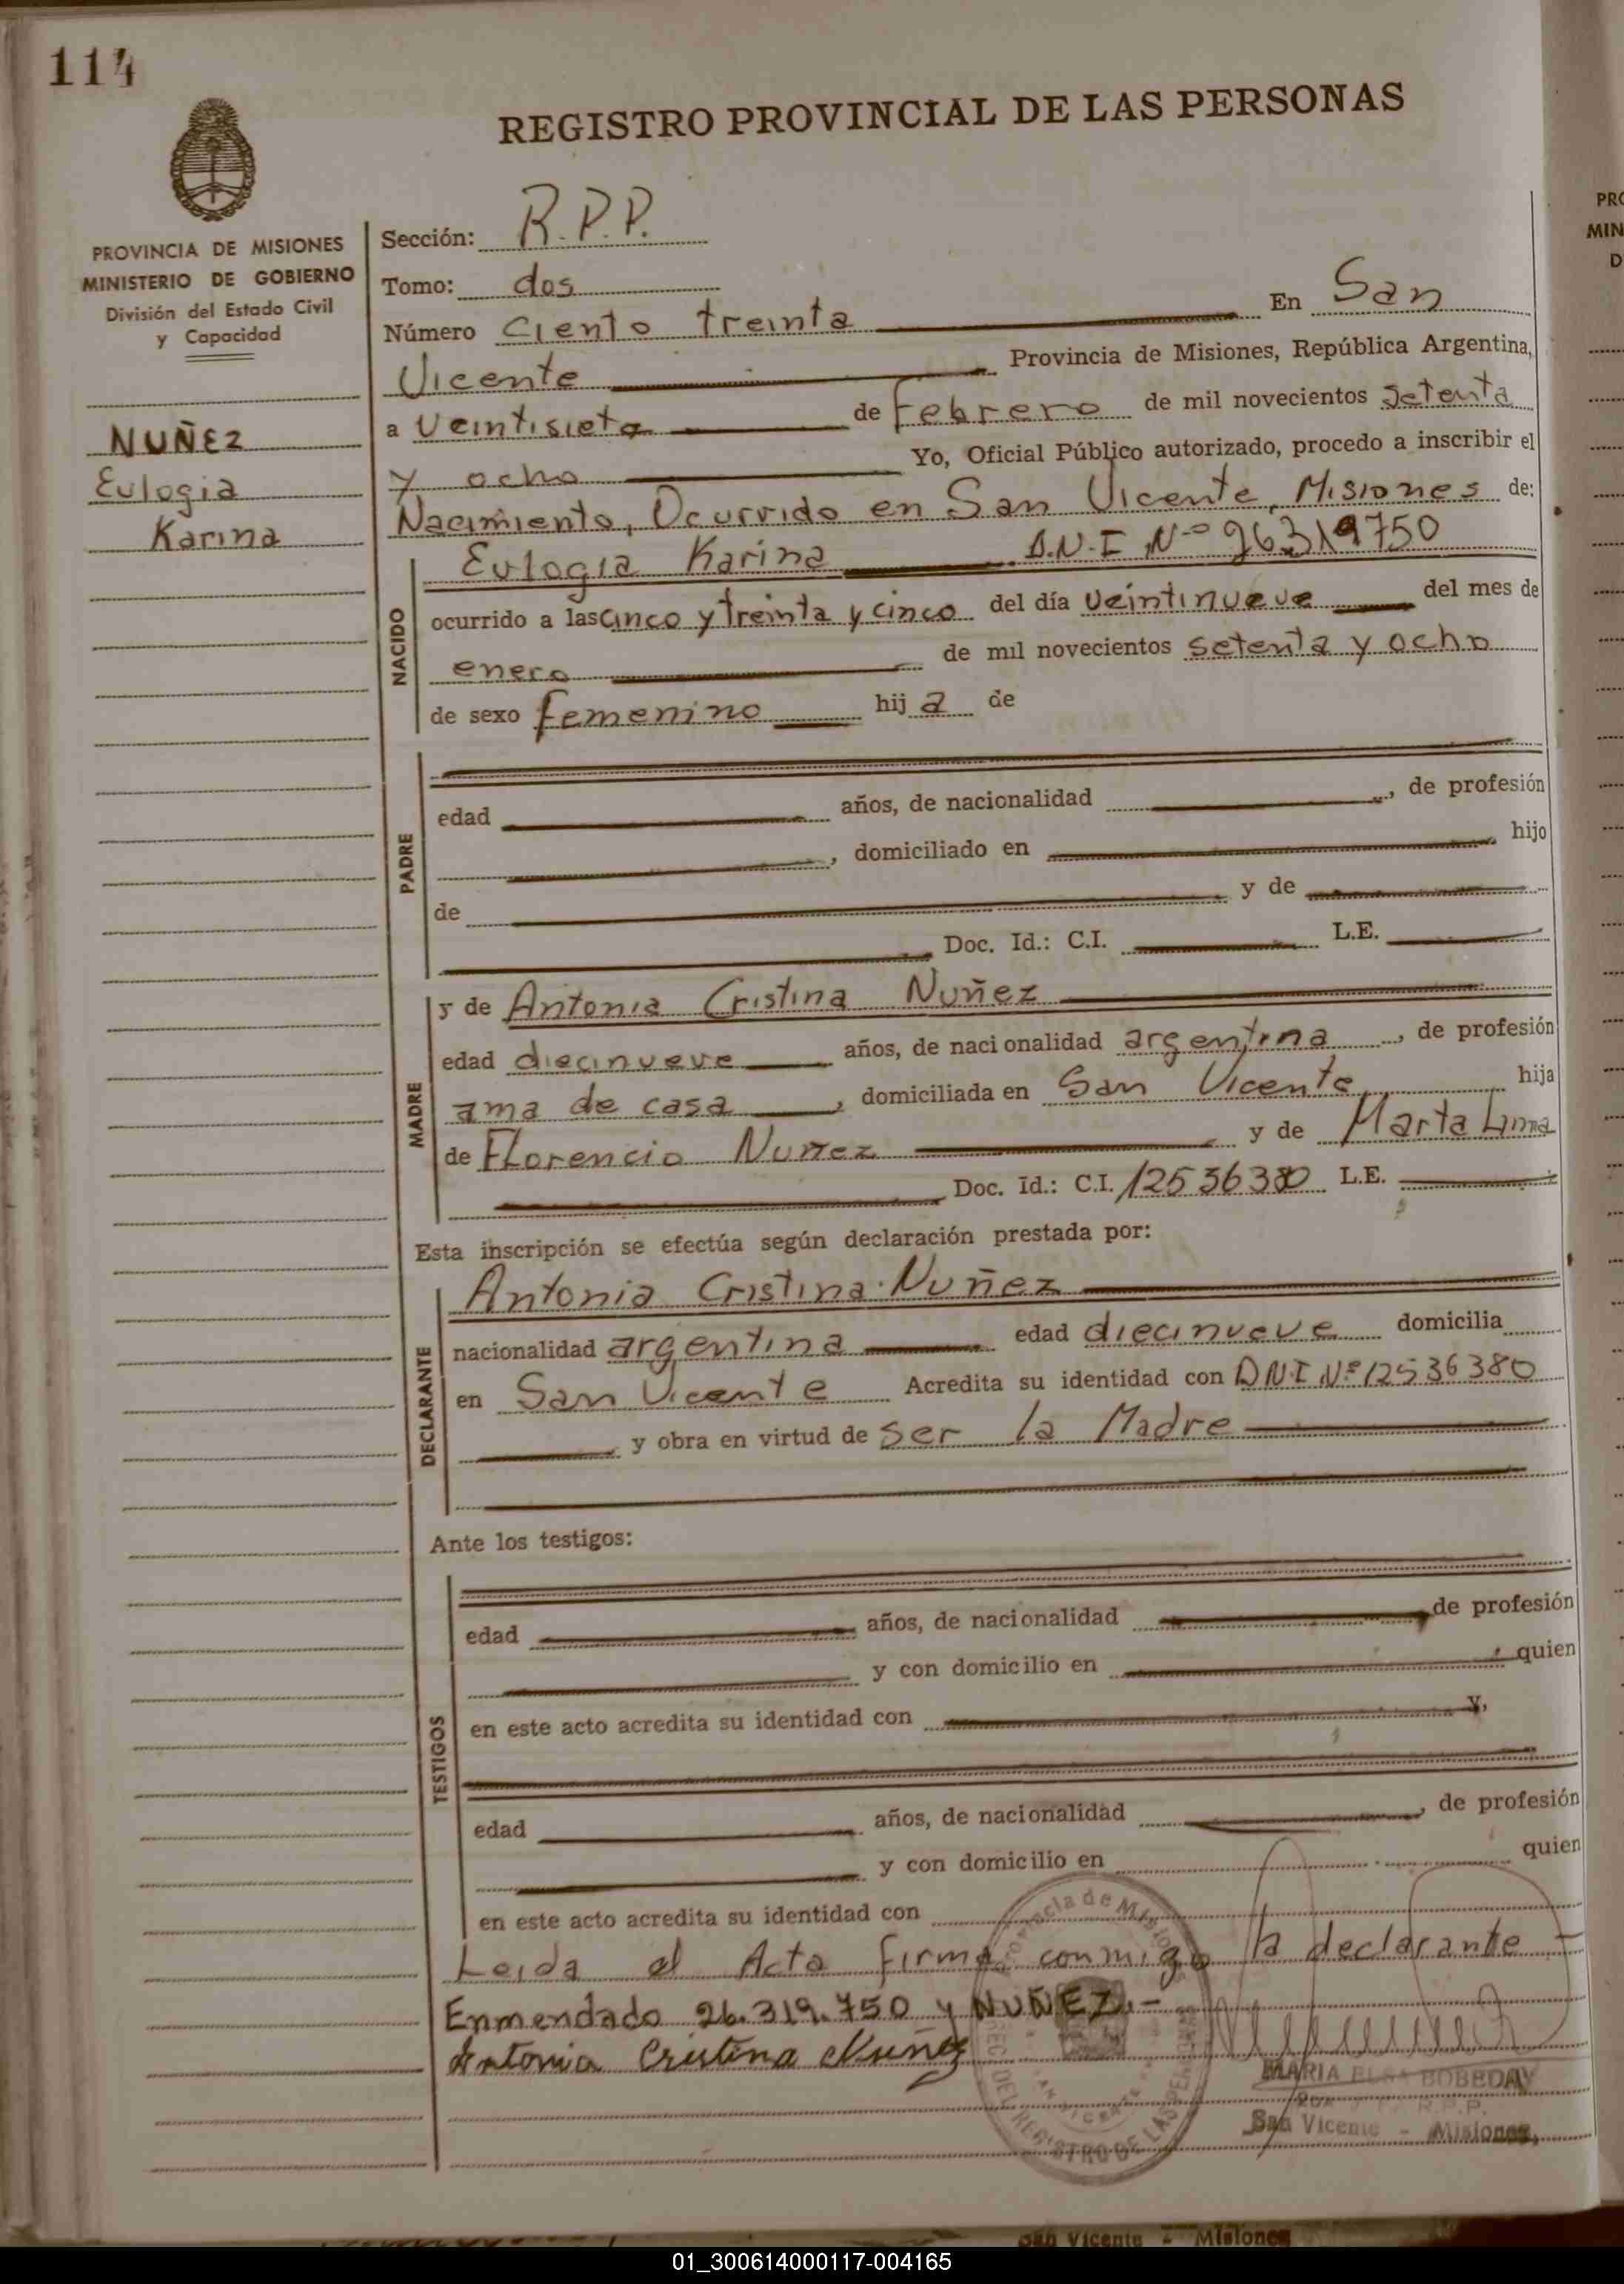 114
REGISTRO PROVINCIAL DE LAS PERSONAS
PROVINCIA DE MISIONES
MINISTERIO DE GOBIERNO
División del Estado Civil
y Capacidad
NUÑEZ
Eulogia
Karina
Sección: R.P.P.
Tomo: dos
Número Ciento treinta En San
Vicente Provincia de Misiones, República Argentina,
a Veintisiete de Febrero de mil novecientos setenta
y ocho Yo, Oficial Público autorizado, procedo a inscribir el
Nacimiento, Ocurrido en San Vicente, Misiones de:
NACIDO
Eulogia Karina D.N.I Nº 26319750
ocurrido a las cinco y treinta y cinco del día veintinueve del mes de
enero de mil novecientos setenta y ocho
de sexo femenino hij a de
PADRE
edad años, de nacionalidad , de profesión
, domiciliado en hijo
de y de
Doc. Id.: C.I. L.E.
MADRE
y de Antonia Cristina Nuñez
edad diecinueve años, de nacionalidad argentina , de profesión
ama de casa , domiciliada en San Vicente hija
de Florencio Nuñez y de Marta Lima
Doc. Id.: C.I. 12536380 L.E.
Esta inscripción se efectúa según declaración prestada por:
DECLARANTE
Antonia Cristina Nuñez
nacionalidad argentina edad diecinueve domicilia
en San Vicente Acredita su identidad con D.N.I Nº 12536380
y obra en virtud de ser la Madre
Ante los testigos:
TESTIGOS
edad años, de nacionalidad de profesión
y con domicilio en , quien
en este acto acredita su identidad con y,
edad años, de nacionalidad , de profesión
y con domicilio en quien
en este acto acredita su identidad con
Leida el Acta firma conmigo la declarante -
Enmendado 26.319.750 y NUÑEZ.-
Antonia Cristina Nuñez
Provincia de Misiones
DEL REGISTRO DE LAS PER
SAN VICENTE
MARIA ELSA BOBEDAY
R.P.P.
San Vicente - Misiones
San Vicente - Misiones
PRO
MIN
D
01_300614000117-004165